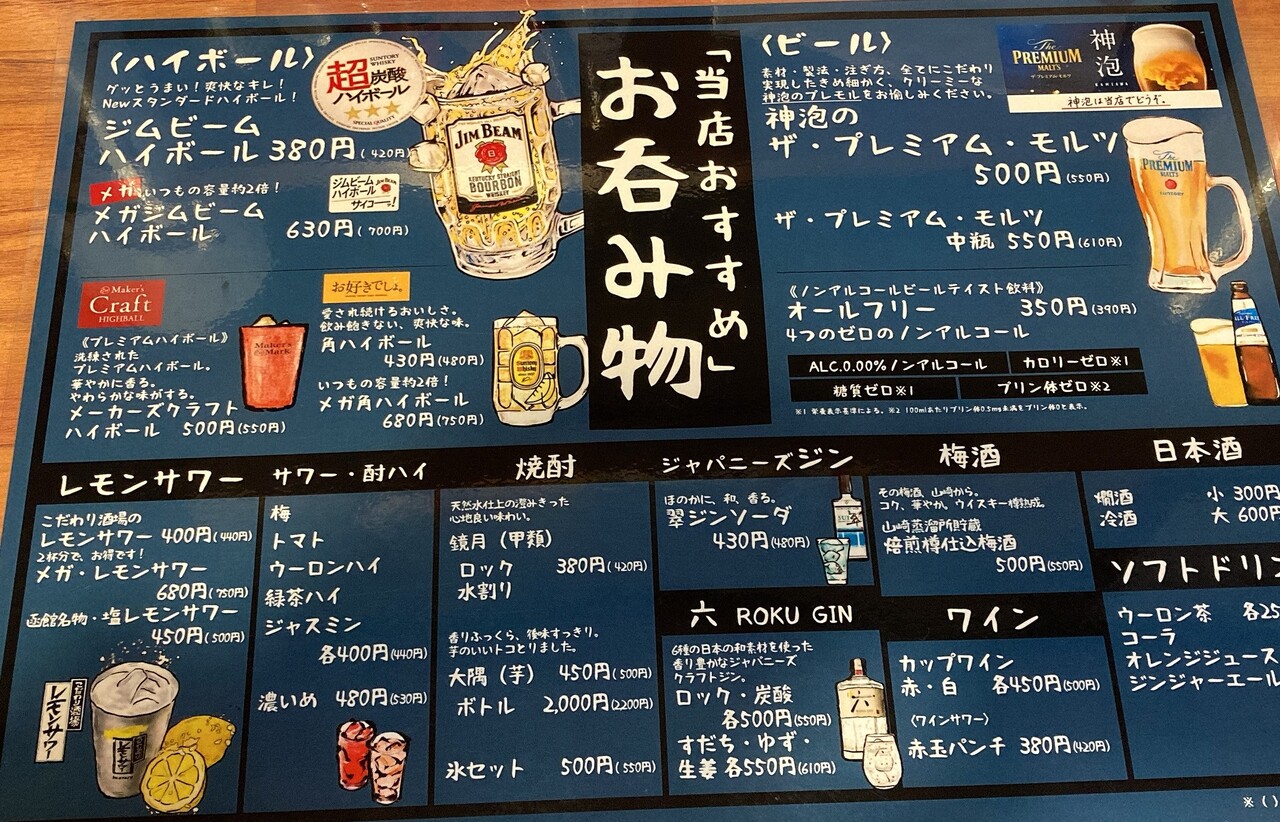 〈ハイボール〉
グッとうまい！爽快なキレ！
Newスタンダードハイボール！
ジムビーム
ハイボール 380円(420円)
メガ いつもの容量約2倍！
メガジムビーム
ハイボール 630円(700円)
SUNTORY WHISKY
超炭酸
ハイボール
SPECIAL QUALITY
JIM BEAM
KENTUCKY STRAIGHT
BOURBON
WHISKEY
ジムビーム
ハイボール
サイコー!
Maker's
Craft
HIGHBALL
《プレミアムハイボール》
洗練された
プレミアムハイボール。
華やかに香る。
やわらかな味がする。
メーカーズクラフト
ハイボール 500円(550円)
Maker's
Mark
お好きでしょ。
愛され続けるおいしさ。
飲み飽きない、爽快な味。
角ハイボール
430円(480円)
いつもの容量約2倍！
メガ角ハイボール
680円(750円)
「当店おすすめ」
お呑み物
〈ビール〉
素材・製法・注ぎ方、全てにこだわり
実現したきめ細かく、クリーミーな
神泡のプレモルをお愉しみください。
神泡の
ザ・プレミアム・モルツ
500円(550円)
ザ・プレミアム・モルツ
中瓶 550円(610円)
The
PREMIUM
MALT'S
ザ・プレミアム・モルツ
神泡
KAMIAWA
神泡は当店でどうぞ。
The
PREMIUM
MALT'S
SUNTORY
《ノンアルコールビールテイスト飲料》
オールフリー 350円(390円)
4つのゼロのノンアルコール
ALC.0.00%ノンアルコール
カロリーゼロ※1
糖質ゼロ※1
プリン体ゼロ※2
※1 栄養表示基準による。※2 100mlあたりプリン体0.5mg未満をプリン体0と表示。
ALL-FREE
レモンサワー
こだわり酒場の
レモンサワー 400円(440円)
2杯分で、お得です！
メガ・レモンサワー
680円(750円)
函館名物・塩レモンサワー
450円(500円)
こだわり酒場の
レモンサワー
サワー・酎ハイ
梅
トマト
ウーロンハイ
緑茶ハイ
ジャスミン
各400円(440円)
濃いめ 480円(530円)
焼酎
天然水仕上の澄みきった
心地良い味わい。
鏡月（甲類）
ロック 380円(420円)
水割り
香りふっくら、後味すっきり。
芋のいいトコとりました。
大隅（芋） 450円(500円)
ボトル 2,000円(2200円)
氷セット 500円(550円)
ジャパニーズジン
ほのかに、和、香る。
翠ジンソーダ
430円(480円)
六 ROKU GIN
6種の日本の和素材を使った
香り豊かなジャパニーズ
クラフトジン。
ロック・炭酸
各500円(550円)
すだち・ゆず・
生姜 各550円(610円)
六
梅酒
その梅酒、山崎から。
コク、華やか。ウイスキー樽熟成。
山崎蒸溜所貯蔵
焙煎樽仕込梅酒
500円(550円)
ワイン
カップワイン
赤・白 各450円(500円)
〈ワインサワー〉
赤玉パンチ 380円(420円)
日本酒
燗酒 小 300円
冷酒 大 600円
ソフトドリン
ウーロン茶 各25
コーラ
オレンジジュース
ジンジャーエール
※()